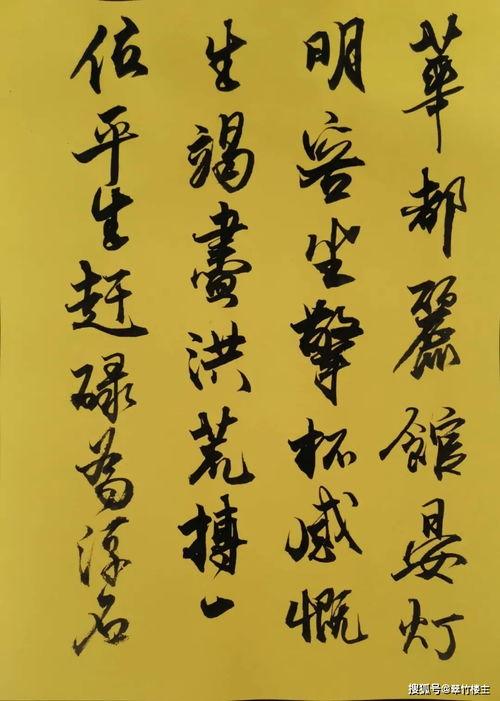 華都麗館晏灯
明客坐擎杯感慨
生竭盡洪荒搏一
位平生赶碌為浮名
搜狐号@翠竹楼主